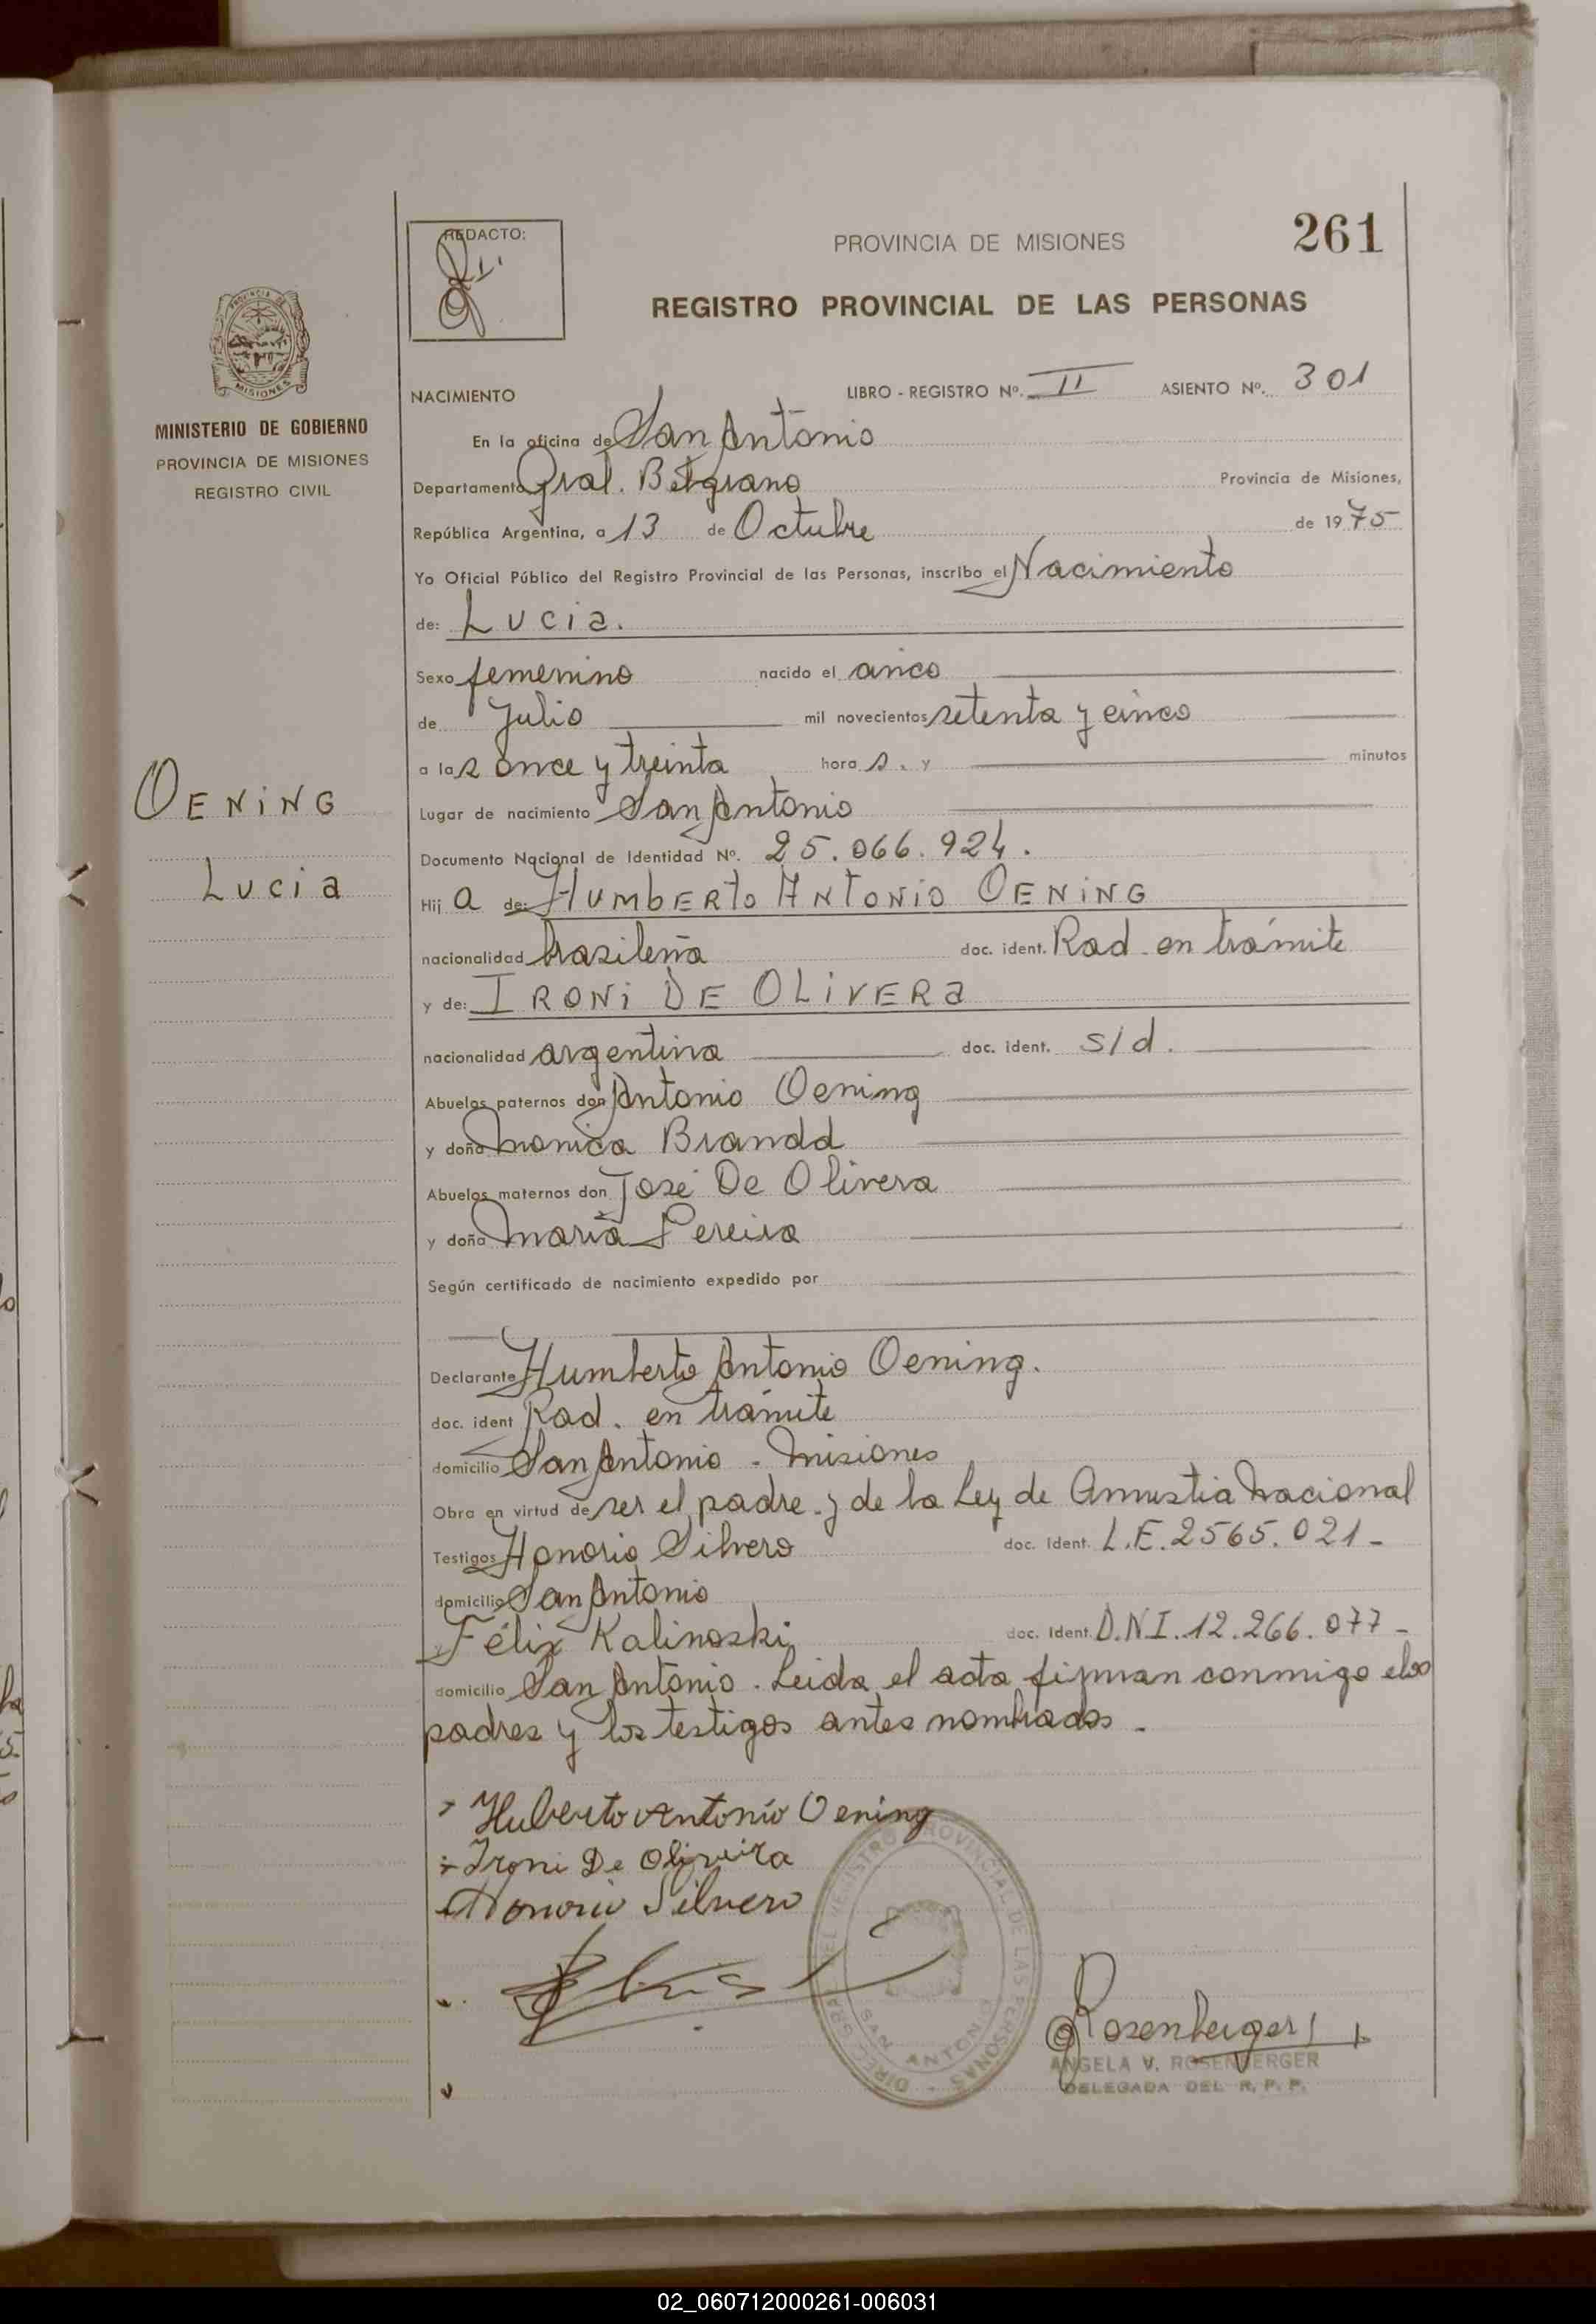 261
REDACTO:
PROVINCIA DE MISIONES
REGISTRO PROVINCIAL DE LAS PERSONAS
MINISTERIO DE GOBIERNO
PROVINCIA DE MISIONES
REGISTRO CIVIL
NACIMIENTO LIBRO - REGISTRO Nº. II ASIENTO Nº. 301
En la oficina de San Antonio
Departamento Gral. Belgrano Provincia de Misiones,
República Argentina, a 13 de Octubre de 1975
Yo Oficial Público del Registro Provincial de las Personas, inscribo el Nacimiento
de: Lucia.
Sexo femenino nacido el cinco
de Julio mil novecientos setenta y cinco
a las once y treinta hora s. y minutos
Oening
Lucia
Lugar de nacimiento San Antonio
Documento Nacional de Identidad Nº. 25.066.924.
Hij a de: Humberto Antonio Oening
nacionalidad brasileña doc. ident. Rad. en trámite
y de: Ironi De Olivera
nacionalidad argentina doc. ident. s/d.
Abuelos paternos don Antonio Oening
y doña Monica Brandd
Abuelos maternos don José De Olivera
y doña Maria Pereira
Según certificado de nacimiento expedido por
Declarante Humberto Antonio Oening.
doc. ident Rad. en trámite
domicilio San Antonio - Misiones
Obra en virtud de ser el padre y de la Ley de Amnistia Nacional
Testigos Honorio Silvero doc. Ident. L.E. 2565.021-
domicilio San Antonio
y Félix Kalinoski doc. Ident. D.N.I. 12.266.077-
domicilio San Antonio. Leida el acta firman conmigo los
padres y los testigos antes nombrados-
Huberto Antonio Oening
Ironi De Oliveira
Honorio Silvero
DIREC. GRAL. DEL REGISTRO PROVINCIAL DE LAS PERSONAS
SAN ANTONIO
Rosenberger
ANGELA V. ROSENBERGER
DELEGADA DEL R. P. P.
02_060712000261-006031